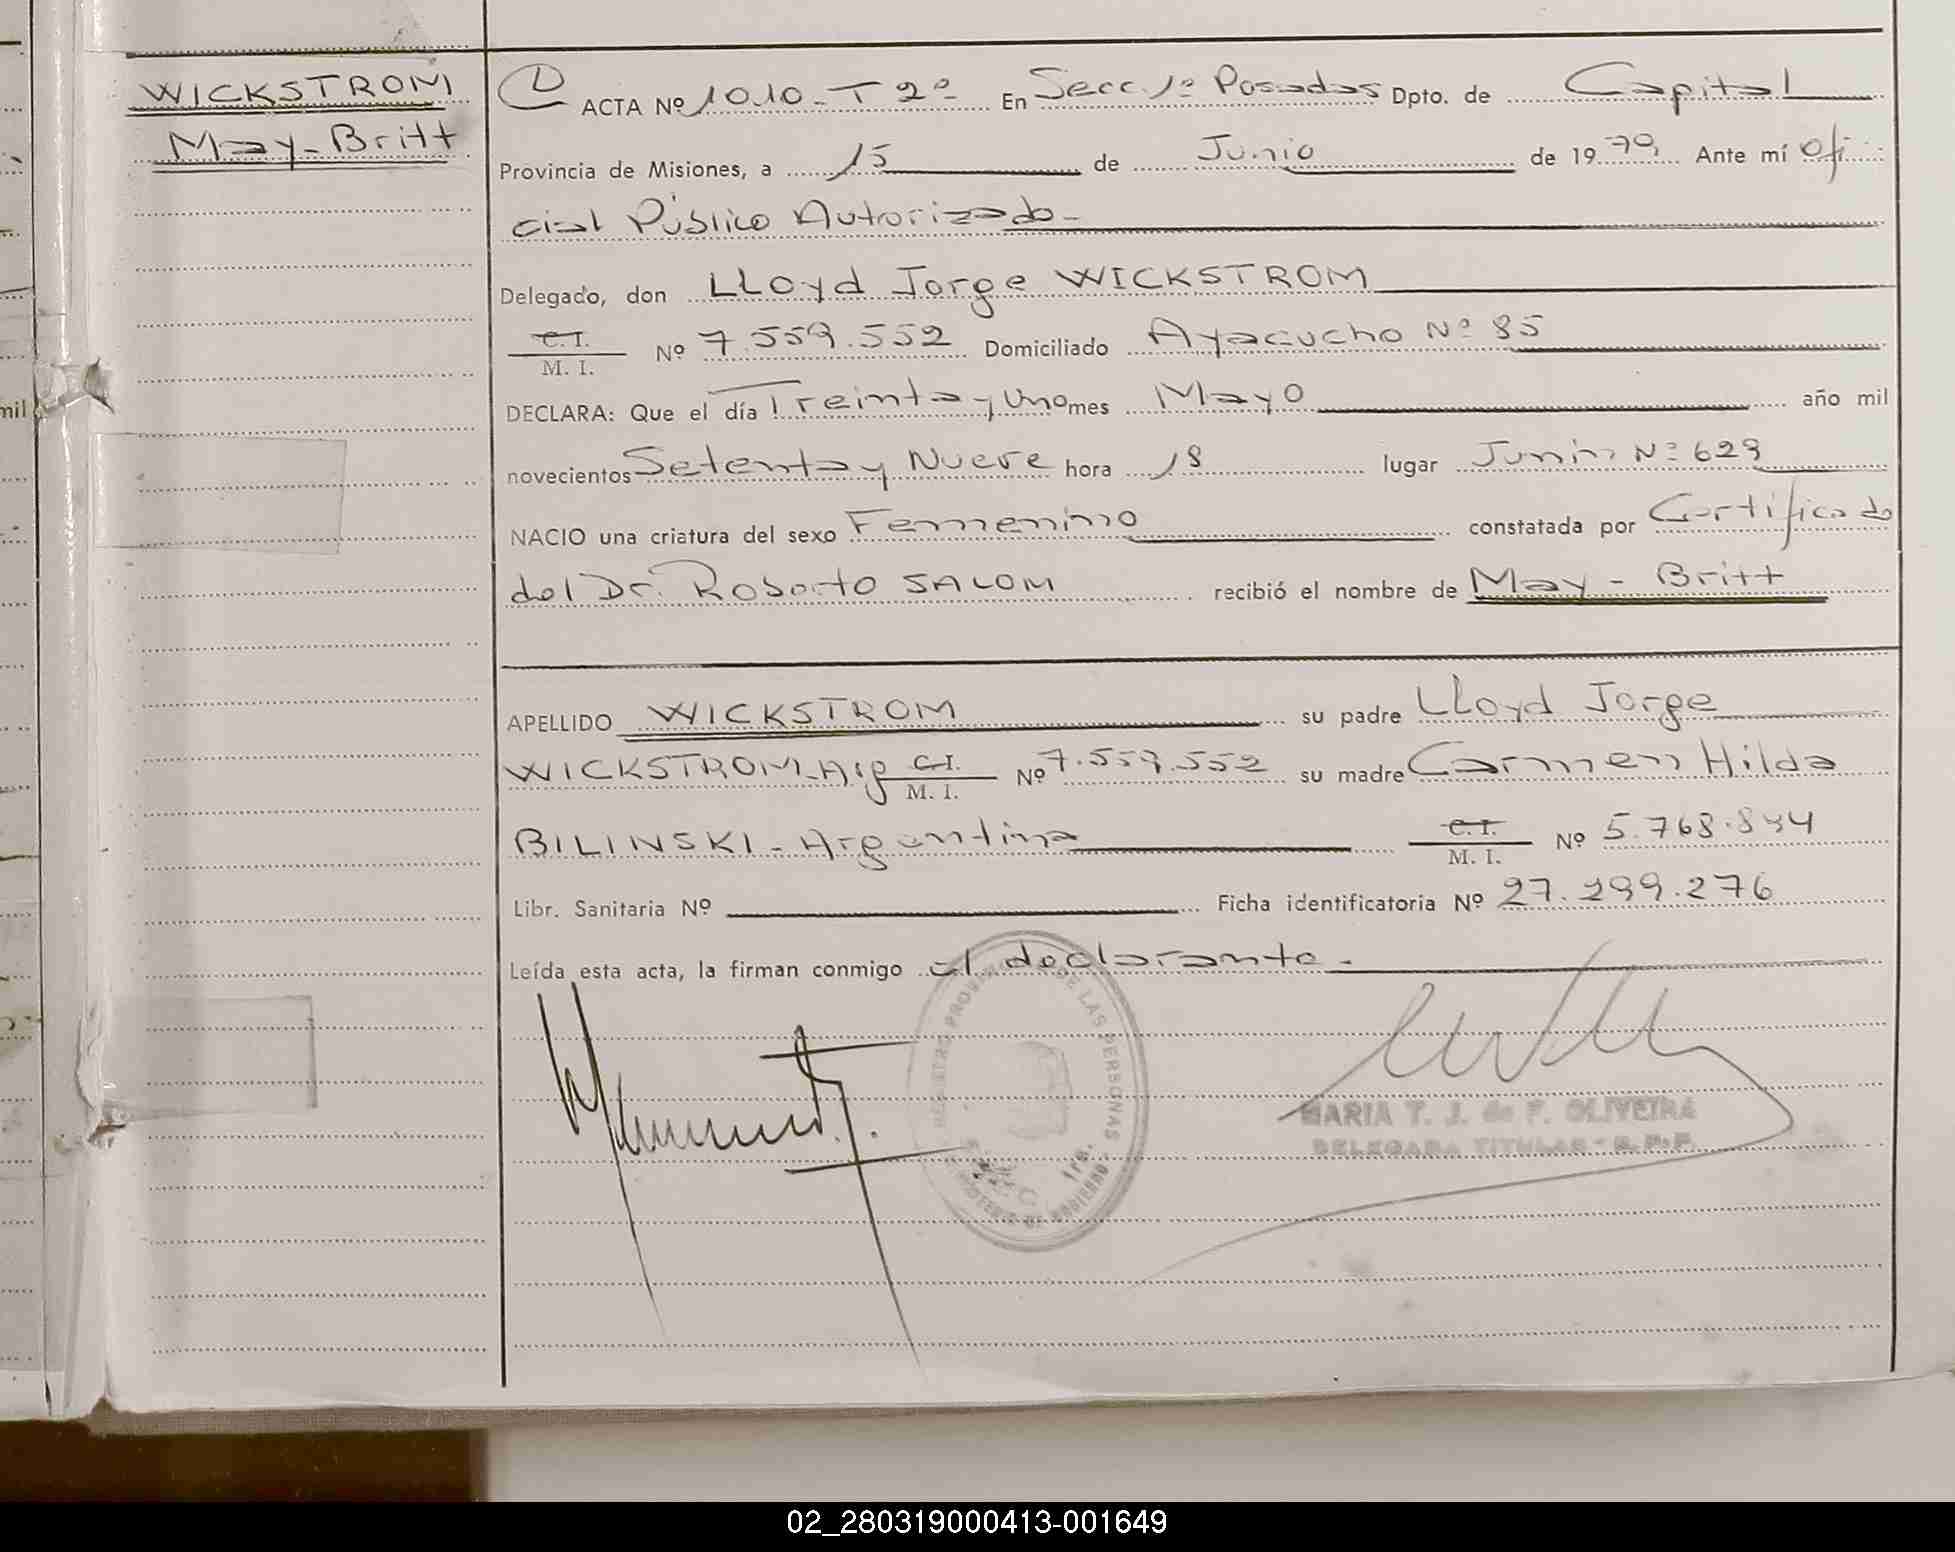 WICKSTROM
May-Britt
ACTA Nº 1010 - T 2º - En Secc. 1º Posadas Dpto. de Capital
Provincia de Misiones, a 15 de Junio de 1979 Ante mí Ofi
cial Público Autorizado -
Delegado, don LLoyd Jorge WICKSTROM
C.I.
M. I. Nº 7.559.552 Domiciliado Ayacucho Nº 85
DECLARA: Que el día Treinta y Uno mes Mayo año mil
novecientos Setenta y Nueve hora 18 lugar Junin Nº 629
NACIO una criatura del sexo Femenino constatada por Certificado
del Dr. Roberto SALOM recibió el nombre de May - Britt
APELLIDO WICKSTROM su padre LLoyd Jorge
WICKSTROM - Arg C.I.
M. I. Nº 7.559.552 su madre Carmen Hilda
BILINSKI - Argentina C.I.
M. I. Nº 5.768.844
Libr. Sanitaria Nº Ficha identificatoria Nº 27.299.276
Leída esta acta, la firman conmigo el declarante -
REGISTRO PROVINCIAL DE LAS PERSONAS
MINISTERIO DE GOBIERNO
1ra.
MARIA T. J. de F. OLIVEIRA
DELEGADA TITULAR - R. P. P.
mil
02_280319000413-001649